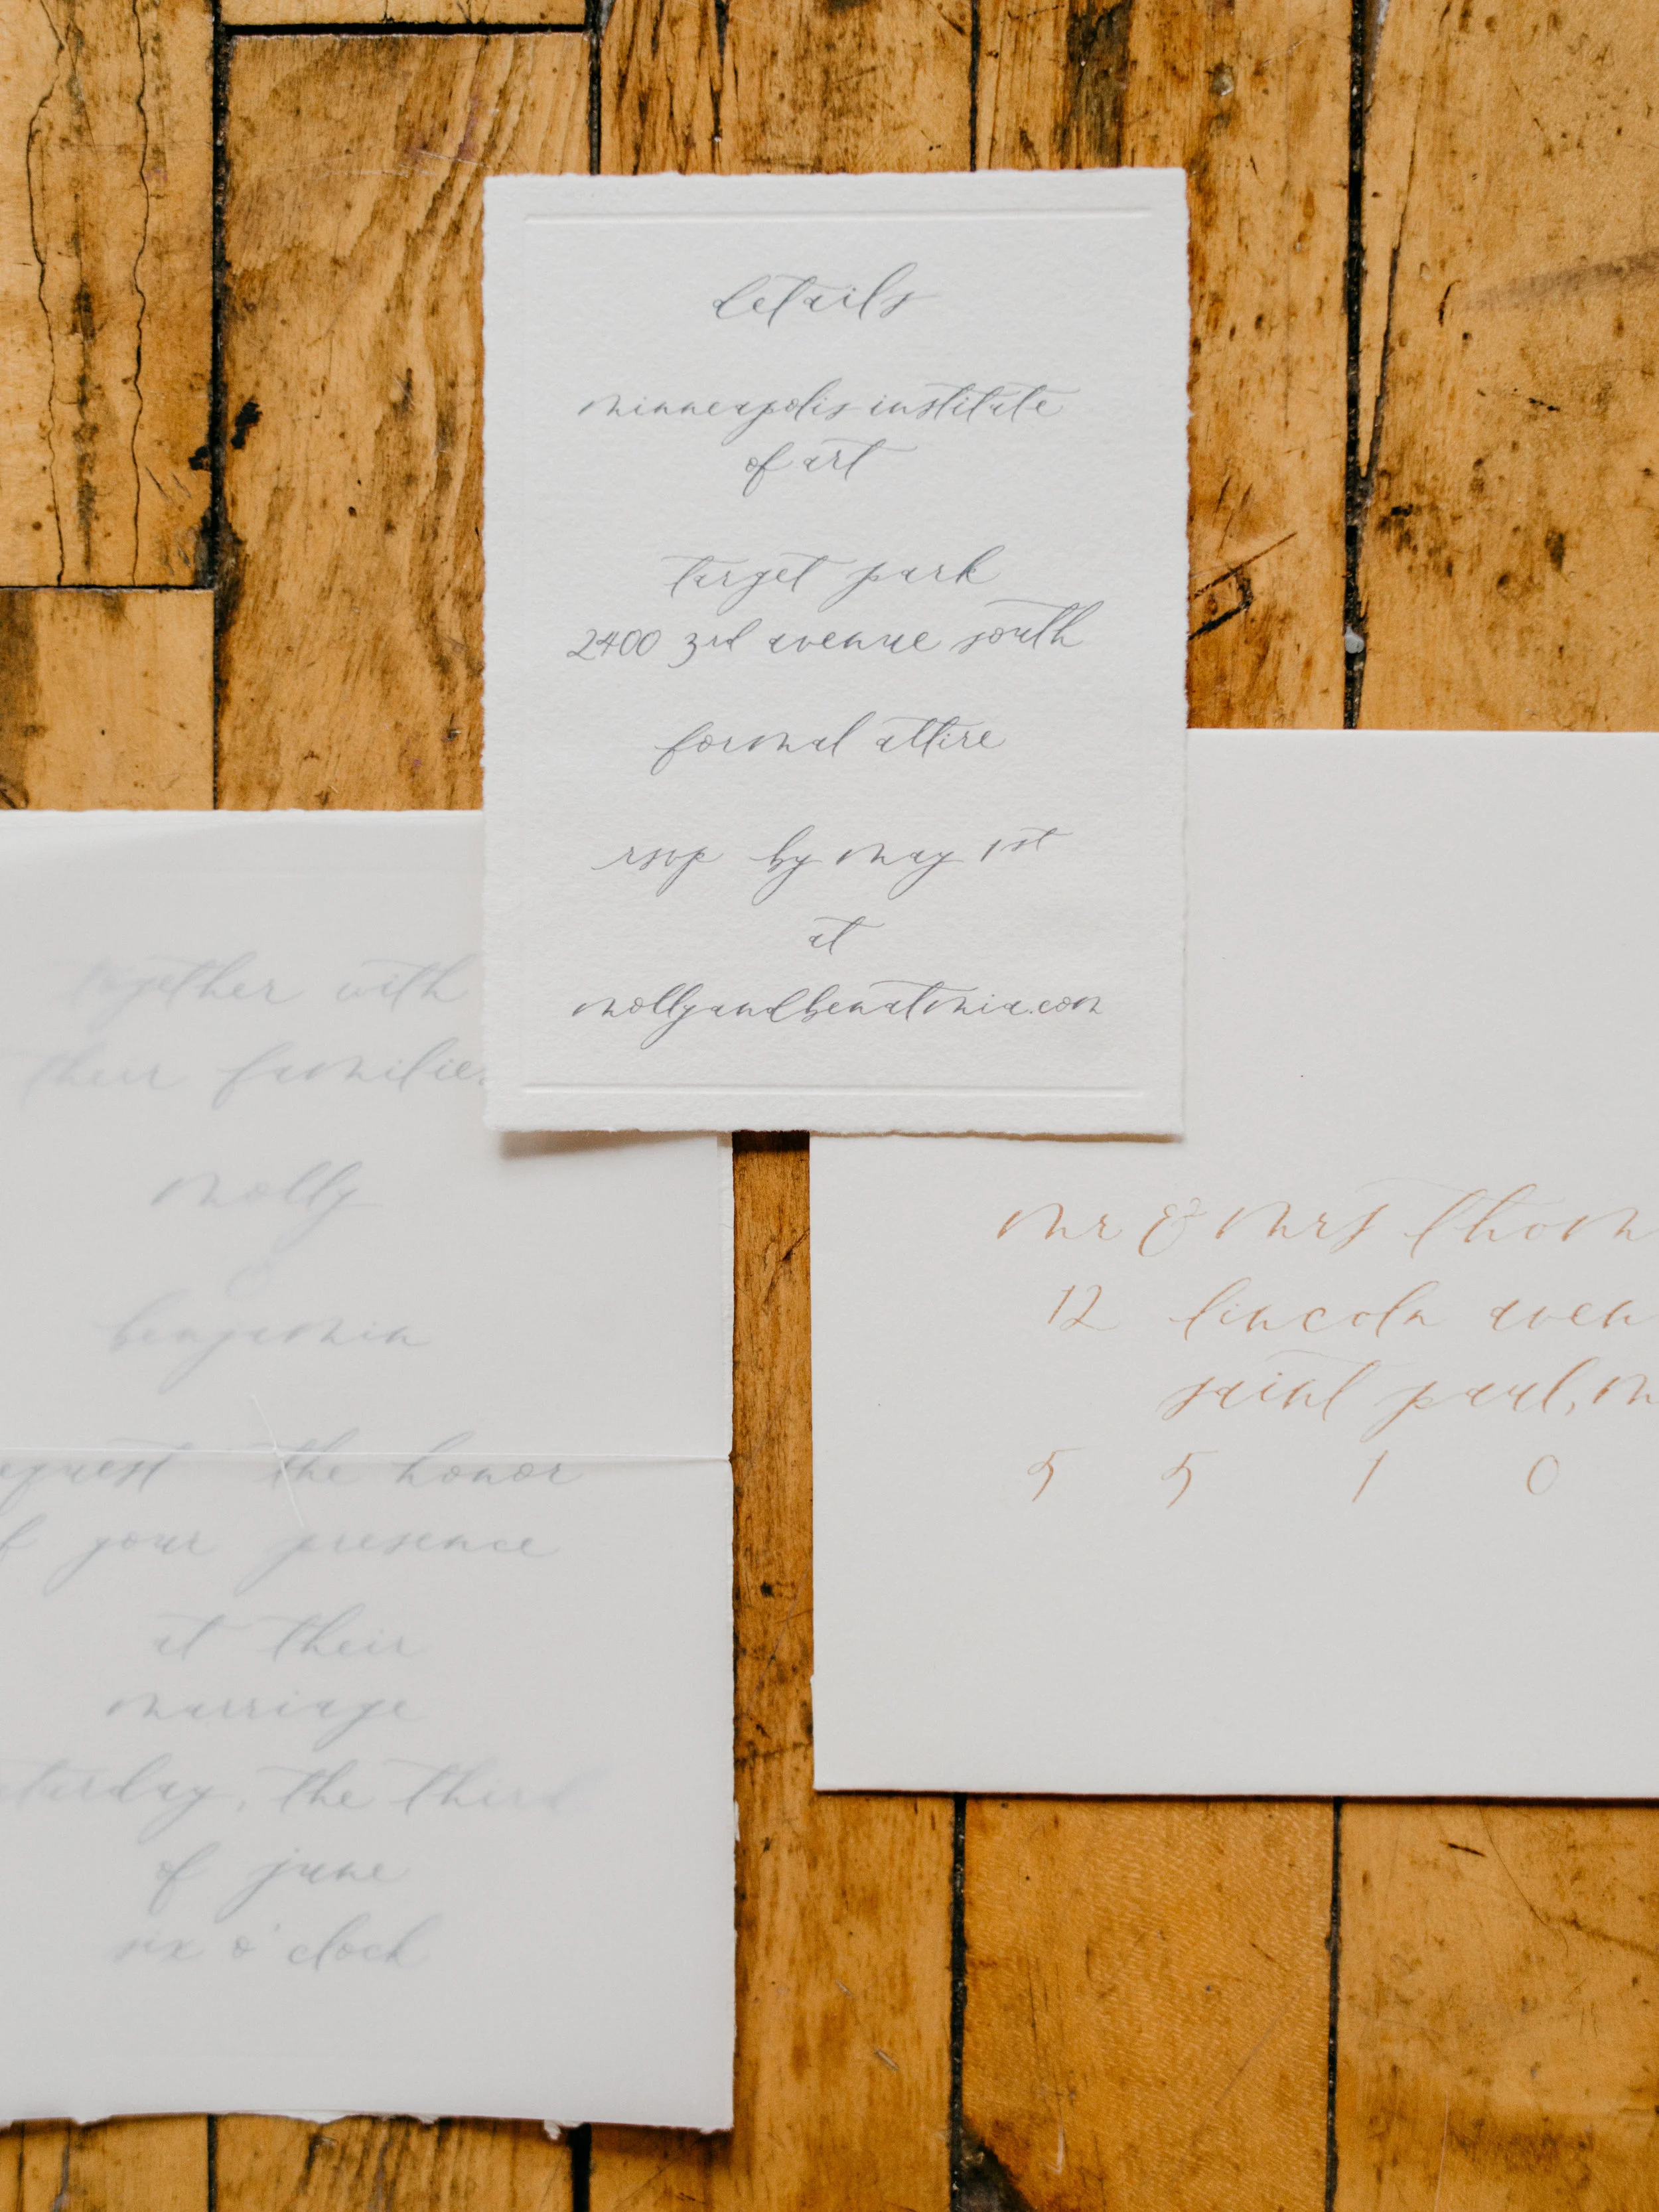 details
minneapolis institute
of art
target park
2400 3rd avenue south
formal attire
rsvp by may 1st
at
mollyandbenatmia.com
together with
their families
molly
&
benjamin
equest the honor
f your presence
at their
marriage
aturday, the third
of june
six o'clock
mr & mrs thom
12 lincoln aven
saint paul, m
5 5 1 0